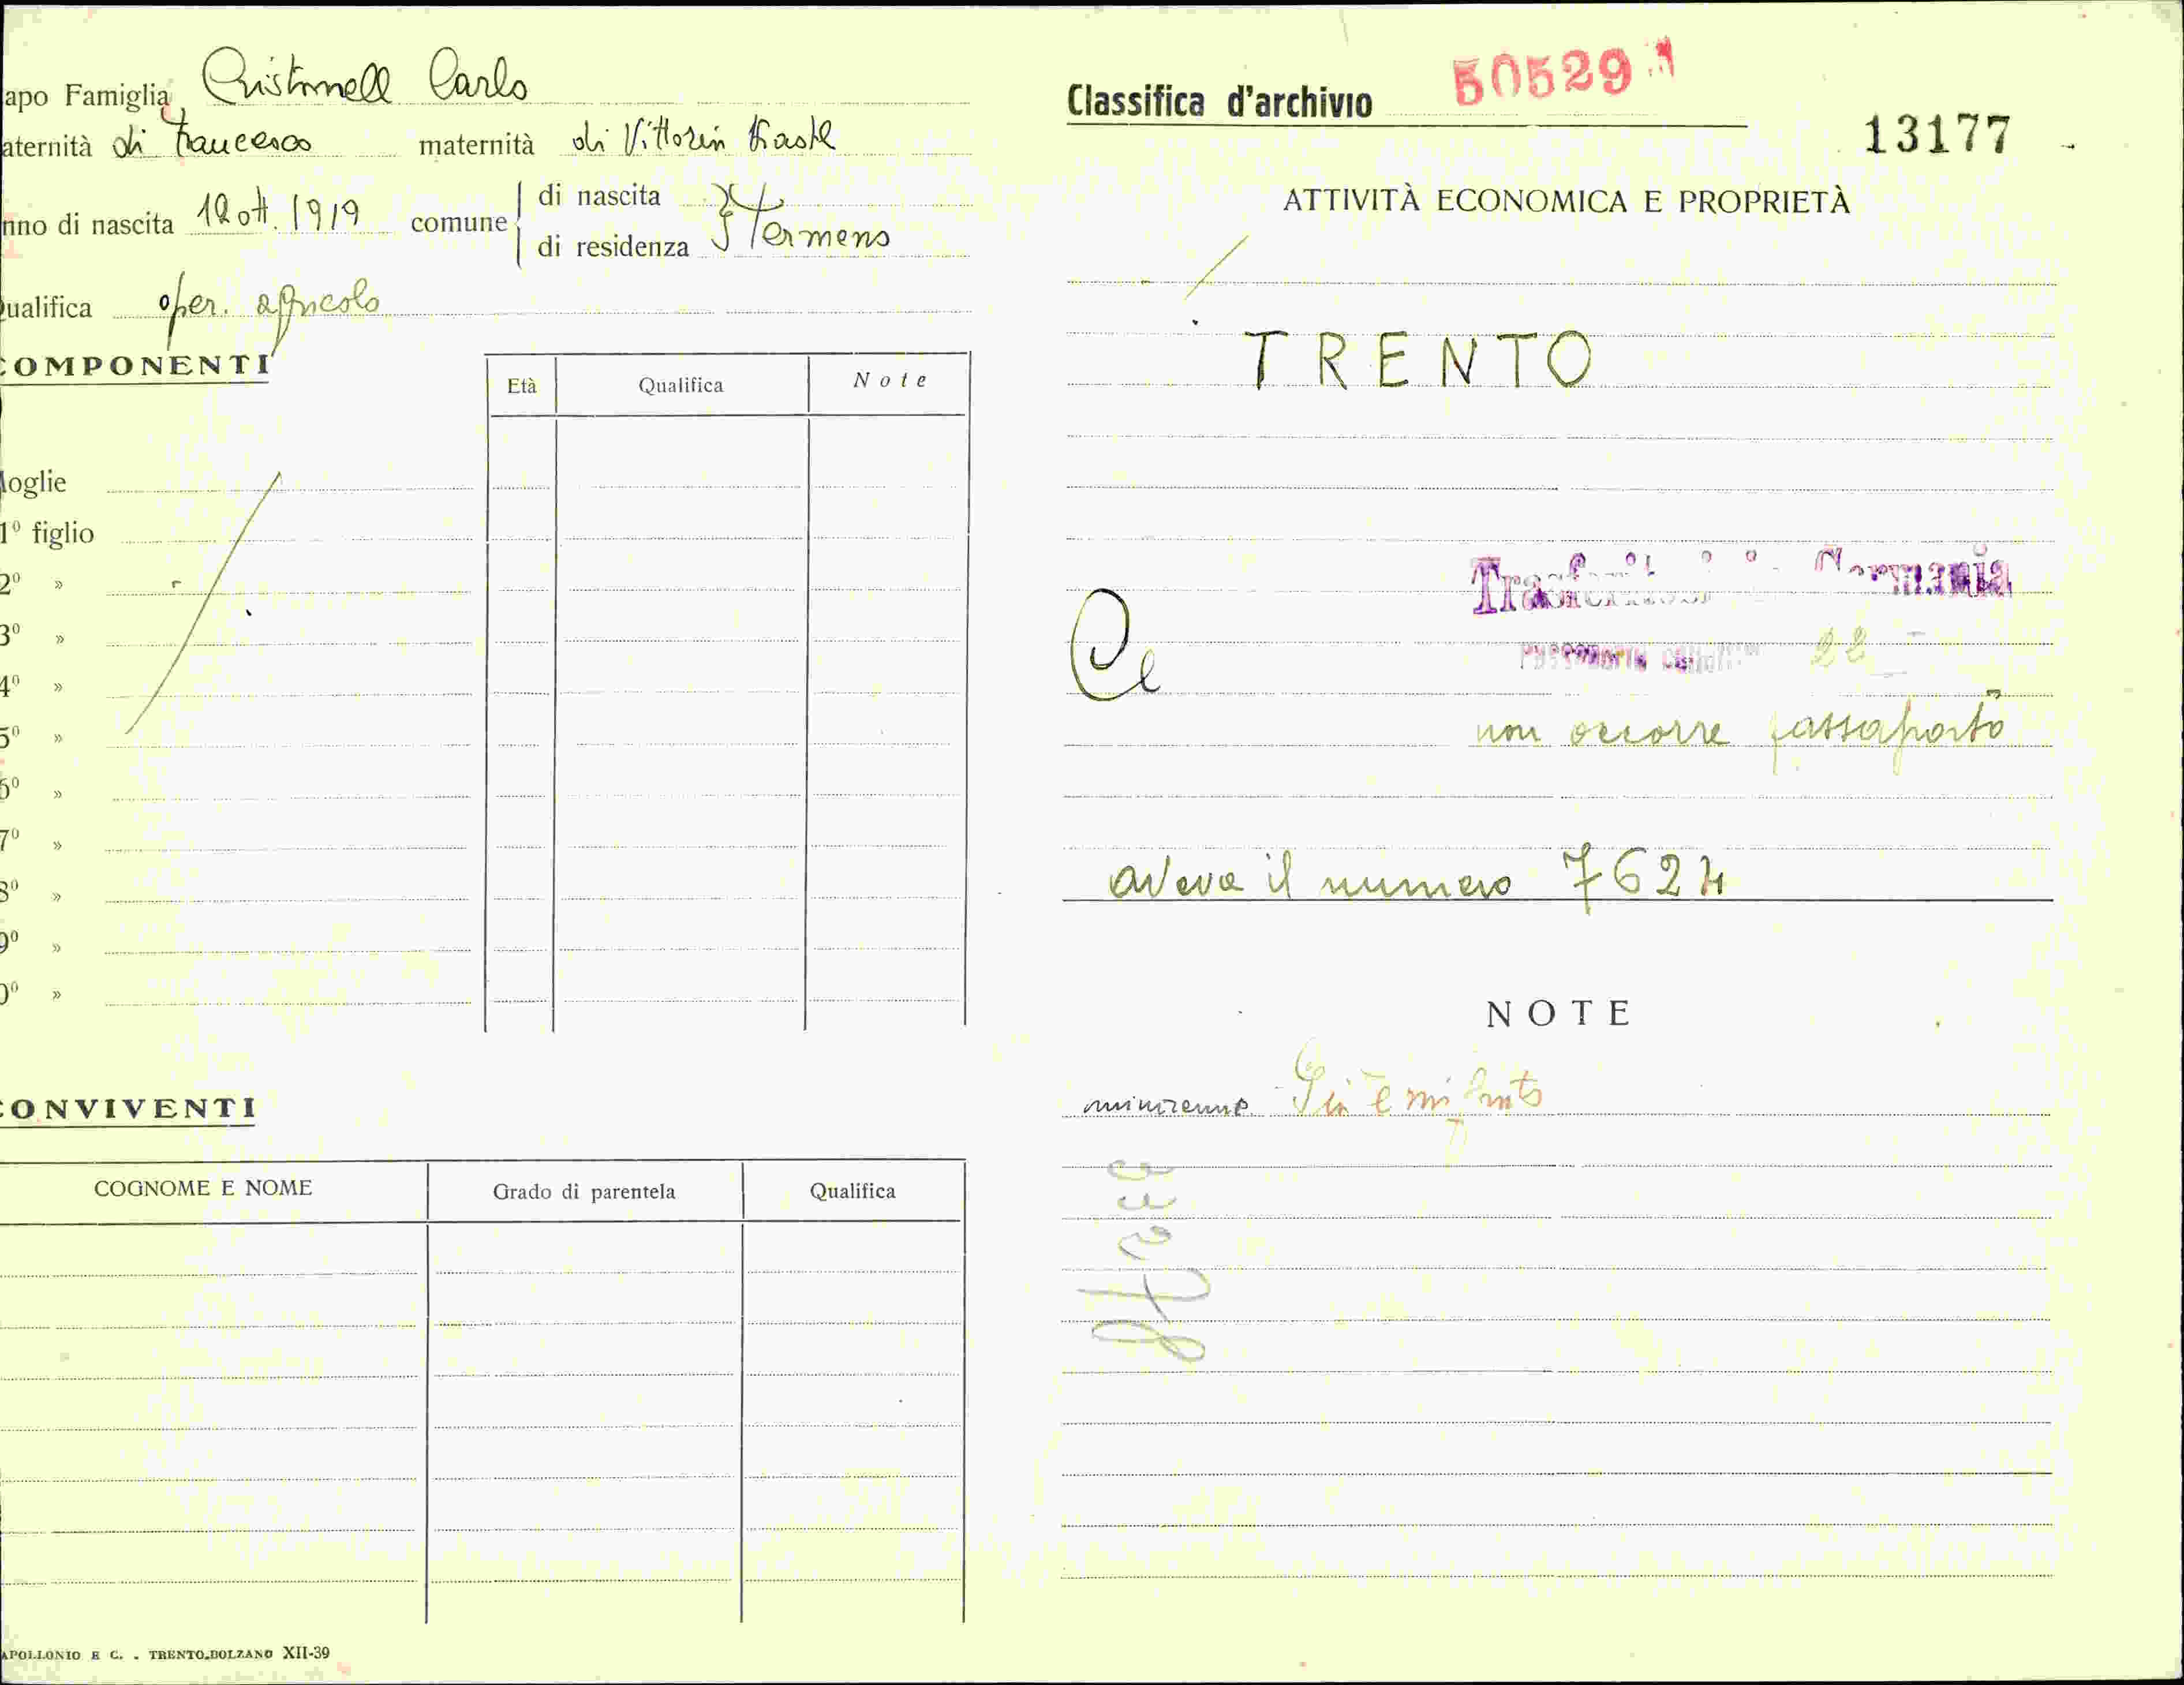 apo Famiglia Cristonell Carlo
aternità di Francesco maternità di Vittorin
nno di nascita 12 ott. 1919 comune di nascita
di residenza Termeno
ualifica oper. agricolo
COMPONENTI
Età Qualifica Note
Moglie
1º figlio
2º »
3º »
4º »
5º »
6º »
7º »
8º »
9º »
0º »
CONVIVENTI
COGNOME E NOME Grado di parentela Qualifica
APOLLONIO E C. - TRENTO-BOLZANO XII-39
Classifica d'archivio 50529
13177
ATTIVITÀ ECONOMICA E PROPRIETÀ
TRENTO
Trasferitosi in Germania
22
non occorre passaporto
aveva il numero 7624
NOTE
minorenne Già emigrato